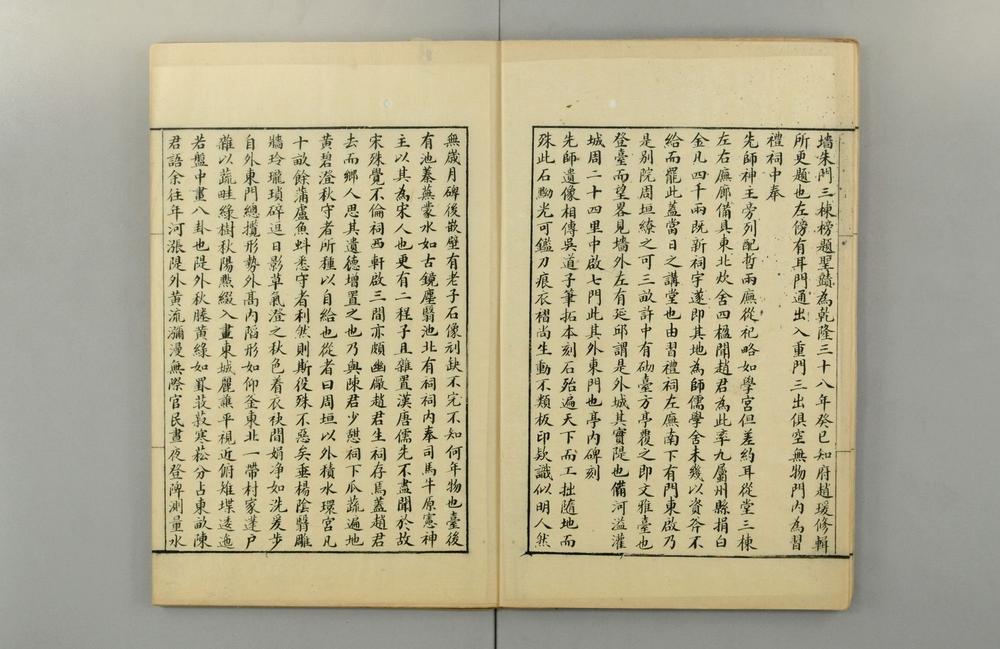 墻朱門三棟榜題聖蹟為乾隆三十八年癸巳知府趙瑗修輯
所更題也左傍有耳門通出入重門三出俱空無物門內為習
禮祠中奉
先師神主旁列配哲兩廡從祀略如學宮但差約耳從堂三棟
左右廡廊備具東北炊舍四楹聞趙君為此率九屬州縣捐白
金凡四千兩既新祠宇遂即其地為師儒學舍未幾以資斧不
給而罷此蓋當日之講堂也由習禮祠左廡南下有門東啟乃
是別院周垣繚之可三畝許中有砌臺方亭覆之即文雅臺也
登臺而望畧見墻外左有延邱謂是外城其實隄也備河溢灌
城周二十四里中啟七門此其外東門也亭內碑刻
先師遺像相傳吳道子筆拓本刻石殆遍天下而工拙隨地而
殊此石黝光可鑑刀痕衣褶尚生動不類板印欵識似明人然
無歲月碑後嵌壁有老子石像刓缺不完不知何年物也臺後
有池蓁蕪蒙水如古鏡塵翳池北有祠祠內奉司馬牛原憲神
主以其為宋人也更有二程子且雜置漢唐儒先不盡聞於故
宋殊覺不倫祠西軒啟三間亦頗幽厰趙君生祠存焉蓋趙君
去而鄉人思其遺德增置之也乃與陳君少憇祠下瓜蔬遍地
黃碧澄秋守者所種以自給也從者曰周垣以外積水環宮凡
十畝餘蒲盧魚蚪悉守者利然則斯役殊不惡矣垂楊陰翳雕
牆玲瓏瑣碎逗日影草氣澄之秋色着衣袂間娟净如洗爰步
自外東門總攬形勢外髙內陷形如仰釜東北一帶村家蓬戶
雜以蔬畦綠樹秋陽㸃綴入畫東城麗譙平視近俯雉堞逶迤
若盤中畫八卦也隄外秋塍黃綠如罫菽蔌寒菘分占東畝陳
君語余往年河漲隄外黃流瀰漫無際官民晝夜登陴測量水